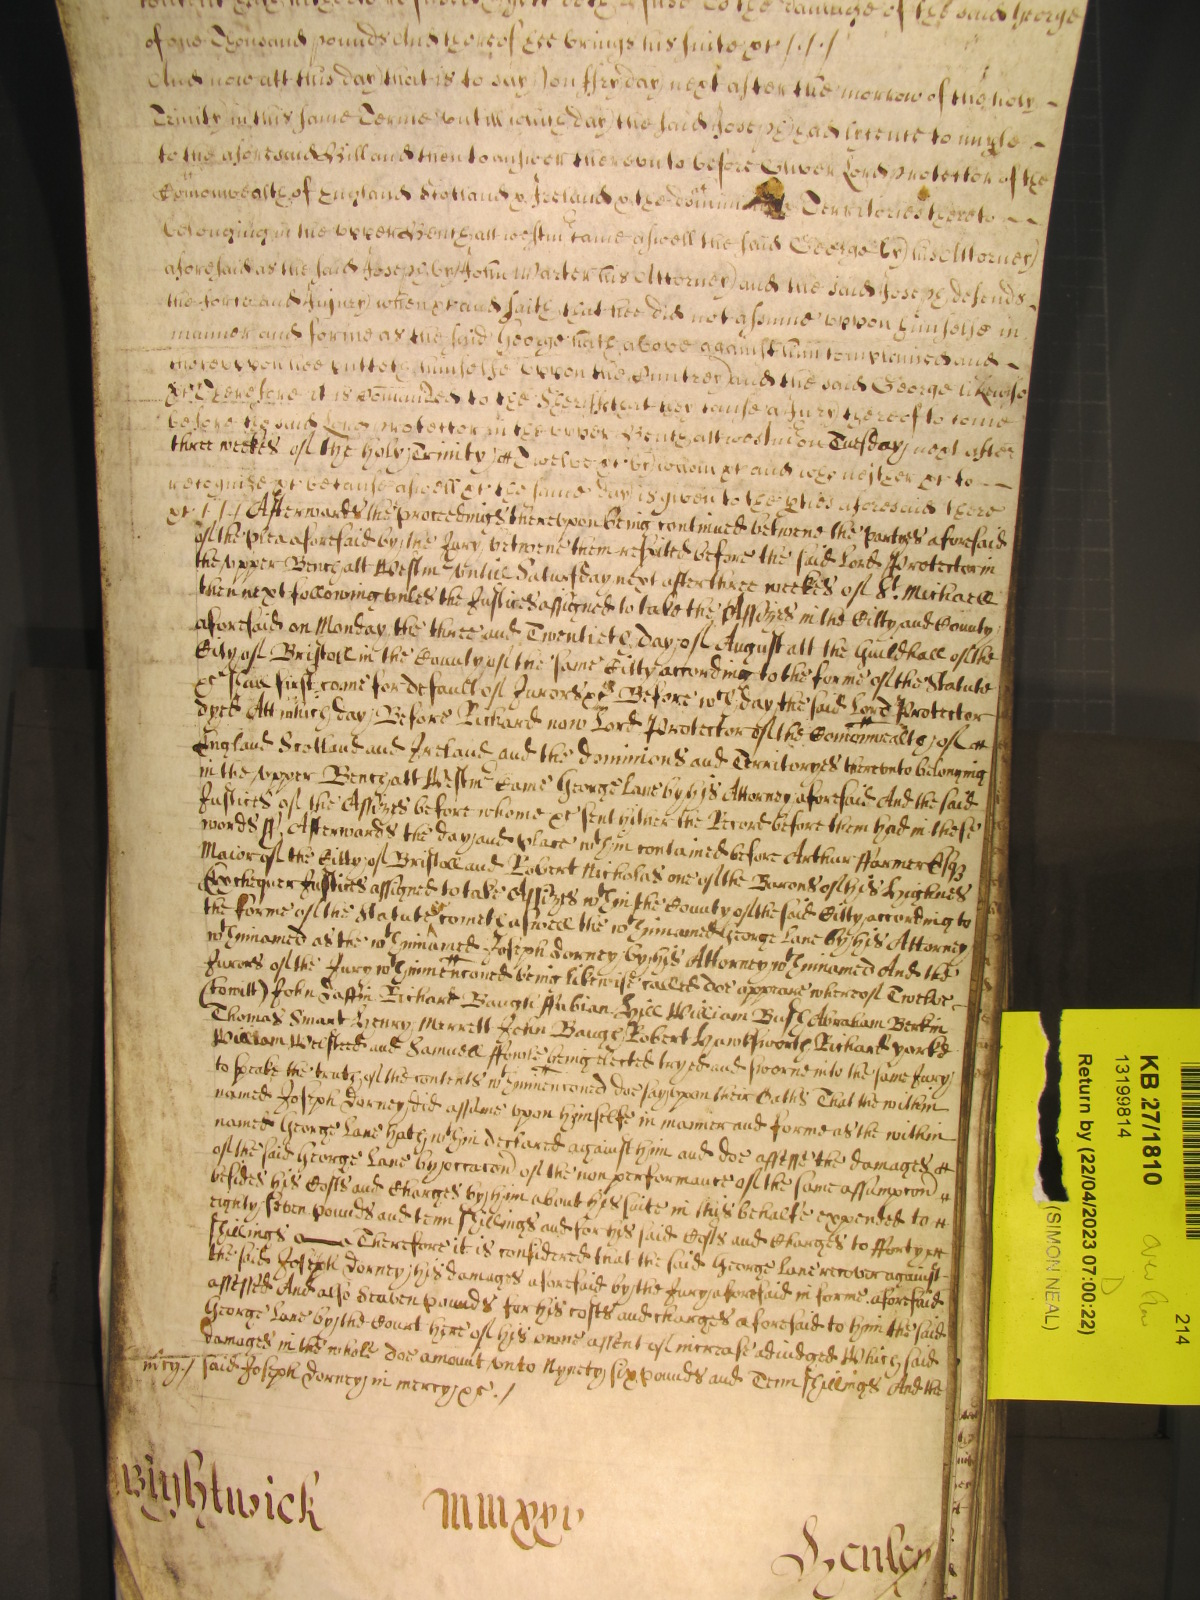 of one Thousand pounds And thereof hee brings his suite &c / / /
And now att this day that is to say on ffryday next after the morrow of the holy
Trinity in this same Terme untill which day the said Joseph had lycence to imple
to the aforesaid Bill and then to answer thereunto before Oliver Lord Protector of the
Comonwealth of England Scotland & Ireland & the Territories thereto
belonging in the upper Bench att westmr came aswell the said George by his Attorney
aforesaid as the said Joseph by John Warter his Attorney and the said Joseph defends
the force and Injury when &c and saith that hee did not assume uppon himselfe in
manner and forme as the said George hath above against him complained and
thereuppon hee putteth himselfe uppon the Countrey and the said George likewise
&c Therefore it is Comanded to the Sheriffe that they cause a Jury thereof to come
before the said Lord Protector in the upper Bench att westmr on Tuesday next after
three weekes of the holy Trinity Twelve &c by whom &c and who neither &c to
recognize &c because aswell &c the same day is given to the pties aforesaid there
&c / / / Afterwards the proceedings thereupon being continued betweene the partyes aforesaid
of the plea aforesaid by the Jury betweene them respited before the said Lord Protector in
the upper Bench att Westmr untill Saturday next after three weekes of St. Michaell
then next following unles the Justices assigned to take the Assizes in the Citty and County
aforesaid on Monday the three and Twentieth day of August att the Guildhall of the
City of Bristoll in the County of the same Citty according to the forme of the Statute
&c shall first come for default of Jurors &c Before wch day the said Lord Protector
dyed Att which day Before Richard now Lord Protector of the Comonwealth of
England Scotland and Ireland and the dominions and Territoryes thereunto belonging
in the upper Bench att Westmr Came George Lane by his Attorney aforesaid And the said
Justices of the Assizes before whome &c sent hither the Record before them had in these
words ss. Afterwards the day and place wthin contained before Arthur ffarmer Esq
Maior of the Citty of Bristoll and Robert Nicholas one of the Barons of his Highnes
Exchequer Justices assigned to take Assizes wthin the County of the said Citty according to
the forme of the Statute cometh aswell the wthinnamed George Lane by his Attorney
wthinnamed as the wthinnamed Joseph Dorney by his Attorney wthinnamed And the
Jurors of the Jury wthinmenconed being likewise called doe appeare whereof Twelve
(to witt) John Saffin Richard Baugh ffabian Hill William Bush Abraham Beckin
Thomas Smart Henry Merrett John Baugh Robert Hawksworth Richard Yorke
William Welsteed and Samuell ffowle being elected tryed and sworne into the same Jury
to speake the truth of the contents wthinmenconed doe say upon their Oaths That the within
named Joseph Dorney did assume upon himselfe in manner and forme as the within
named George Lane hath wthin declared against him and doe assesse the damages
of the said George Lane by occacon of the non performance of the same assumpcon
besides his Costs and Charges by him about his suite in this behalfe expended to
eighty seven pounds and tenn shillings and for his said Costs and Charges to fforty
shillings Therefore it is considered that the said George Lane recover against
the said Joseph Dorney his damages aforesaid by the Jury aforesaid in forme aforesaid
assessed And also Seaven pounds for his costs and charges aforesaid to him the said
George Lane by the Court here of his owne assent of increase adiudged Which said
damages in the whole doe amount unto Nynety six pounds and Tenn shillings And the
mcy / said Joseph Dorney in mercy &c. /
Wightwick
MMxxv
Henley
KB 27/1810
13199814
Return by (22/04/2023 07:00:22)
(SIMON NEAL)
214